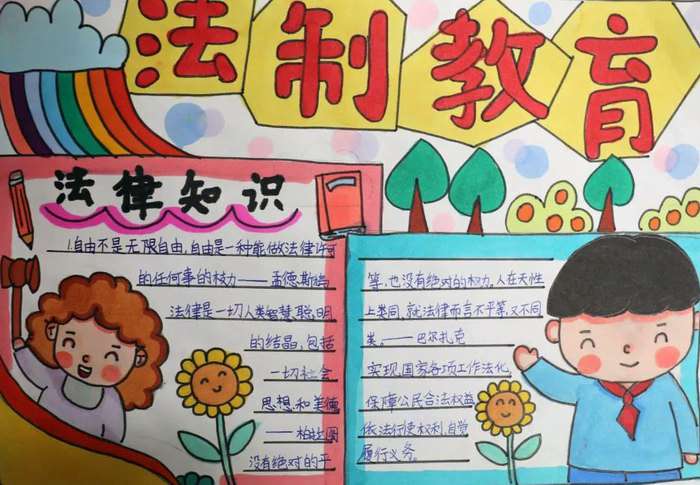 法制教育
法律知识
1.自由不是无限自由,自由是一种能做法律许可
的任何事的权力——孟德斯鸠
法律是一切人类智慧聪明
的结晶,包括
一切社会
思想和美德
——柏拉图
没有绝对的平
等,也没有绝对的权力,人在天性
上类同,就法律而言不平等,又不同
类。——巴尔扎克
实现国家各项工作法化,
保障公民合法权益
依法行使权利,自觉
履行义务。